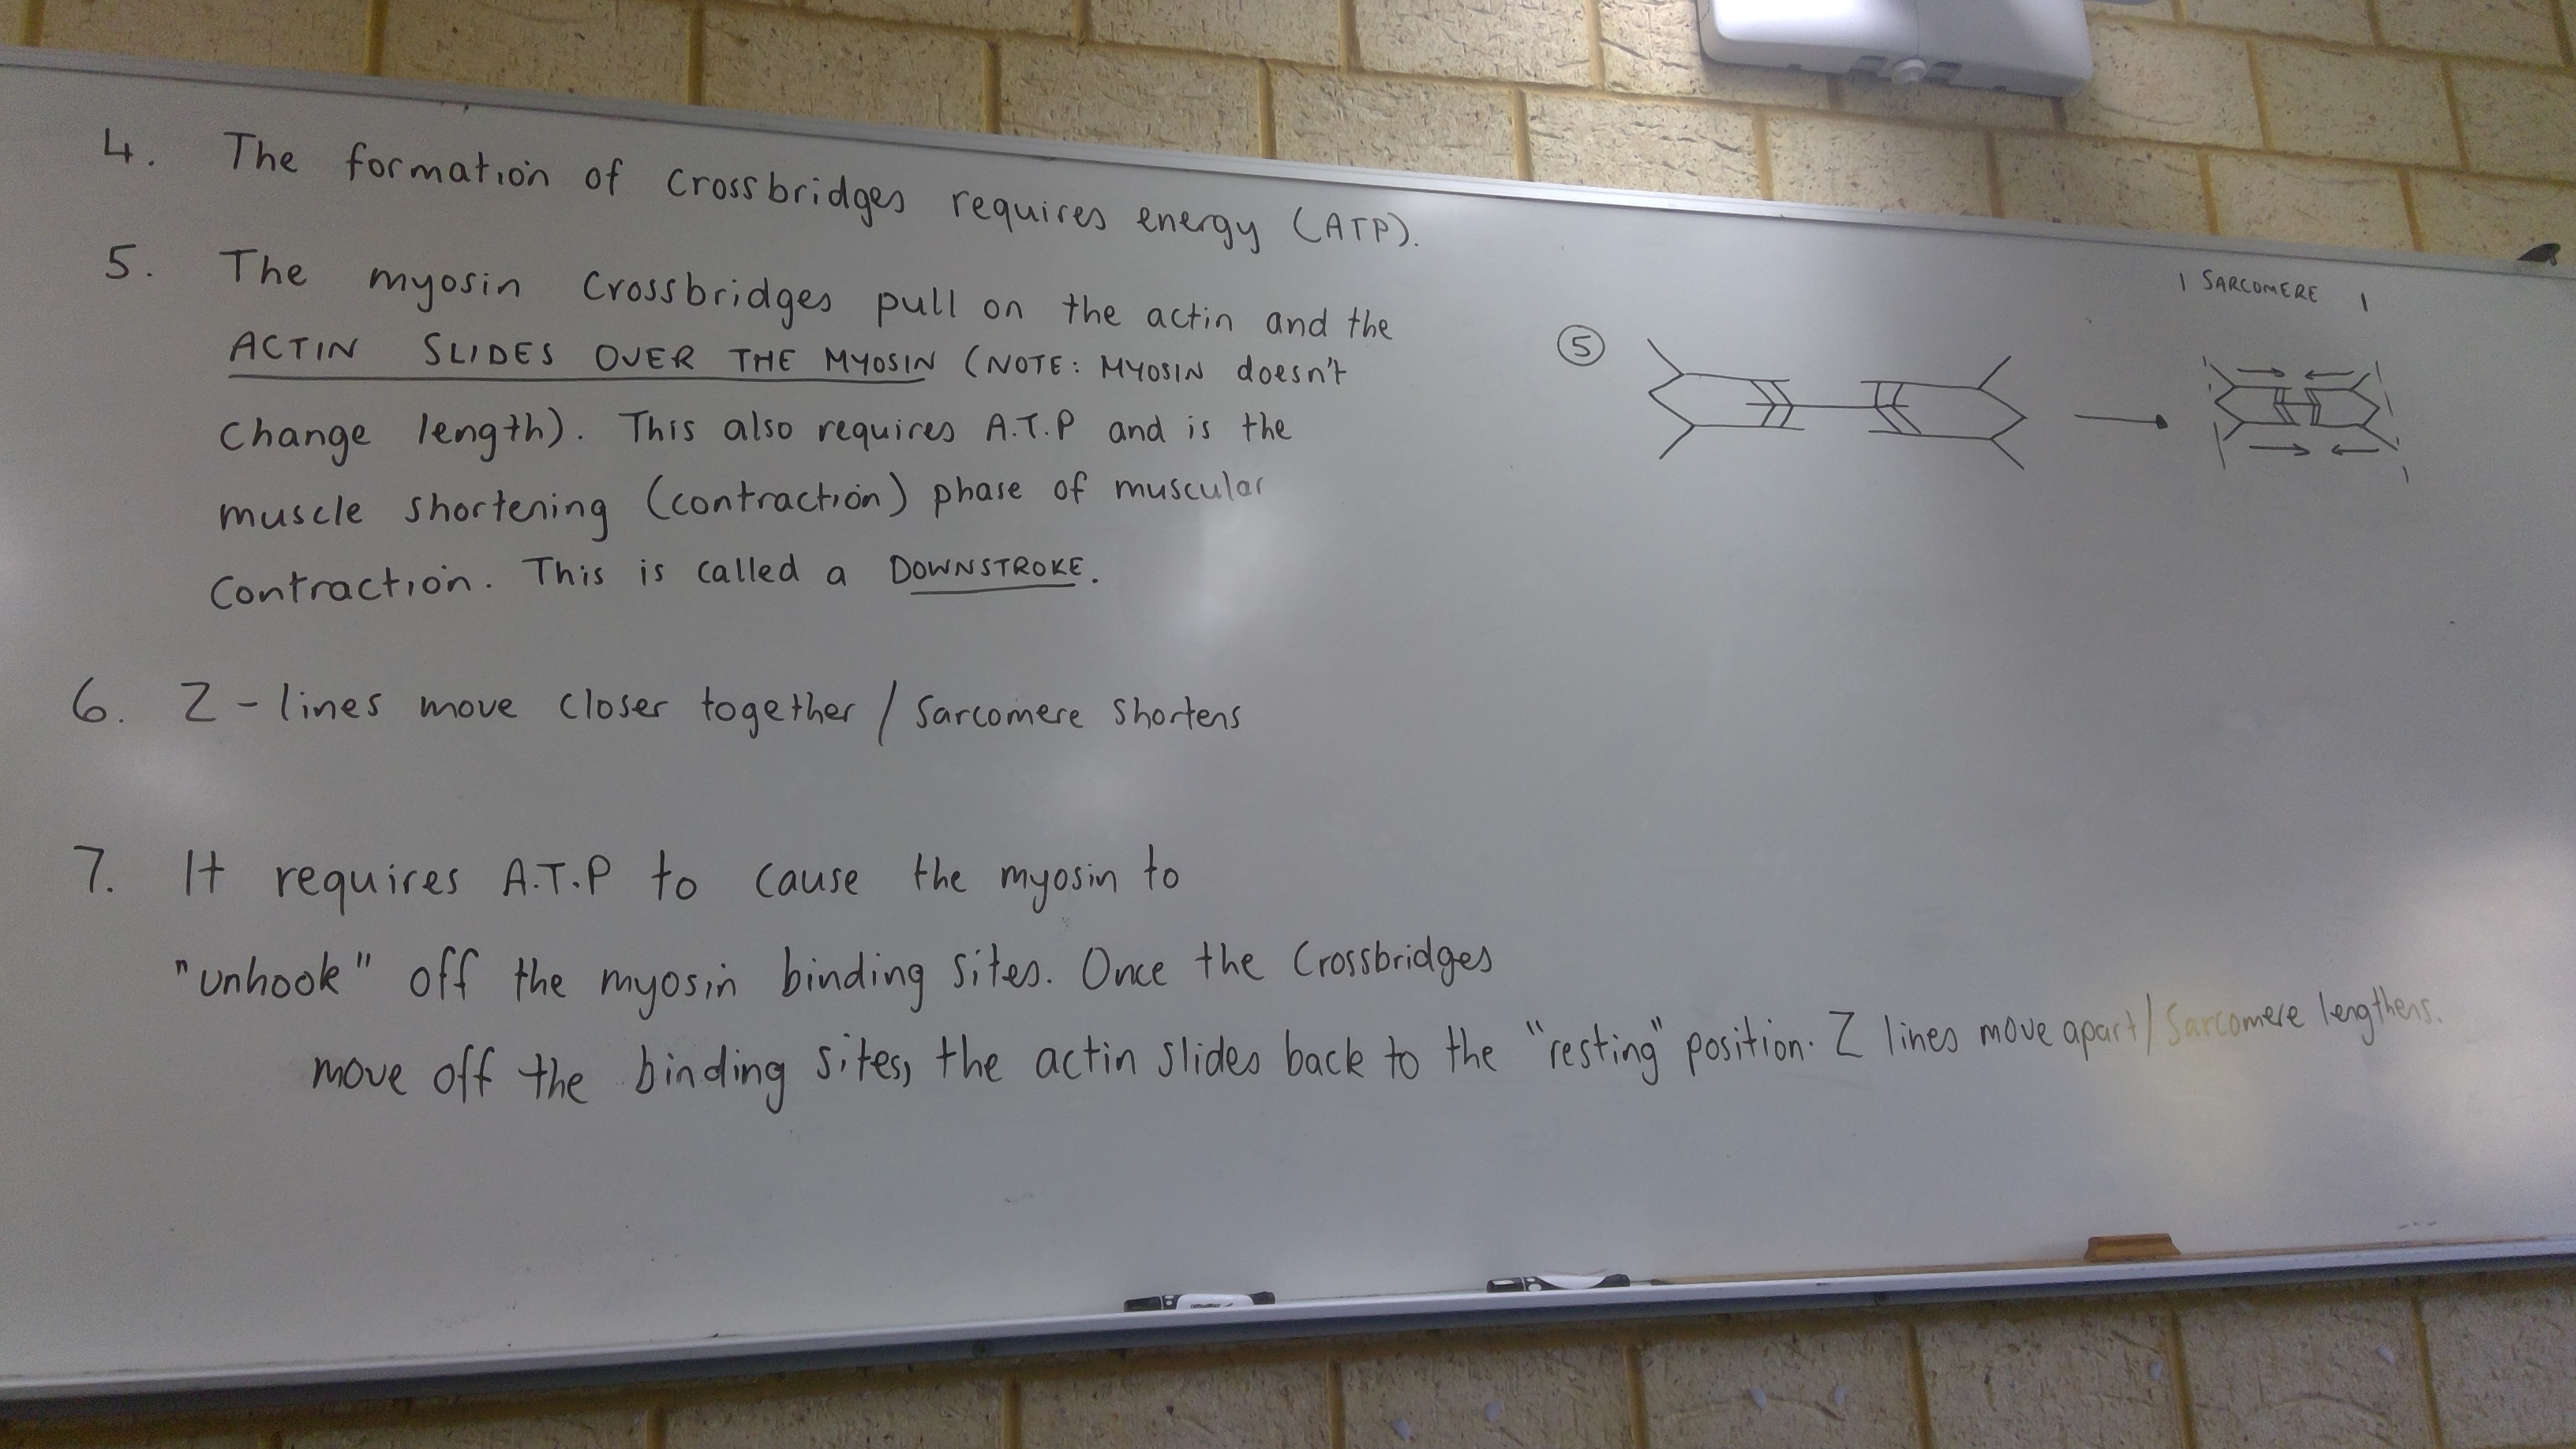 4. The formation of crossbridges requires energy (ATP).
5. The myosin crossbridges pull on the actin and the
ACTIN SLIDES OVER THE MYOSIN (NOTE: MYOSIN doesn't
change length). This also requires A.T.P and is the
muscle shortening (contraction) phase of muscular
contraction. This is called a DOWNSTROKE.
6. Z-lines move closer together / sarcomere shortens
7. It requires A.T.P to cause the myosin to
"unhook" off the myosin binding sites. Once the crossbridges
move off the binding sites, the actin slides back to the "resting" position. Z lines move apart/ Sarcomere lengthens.
SARCOMERE
5